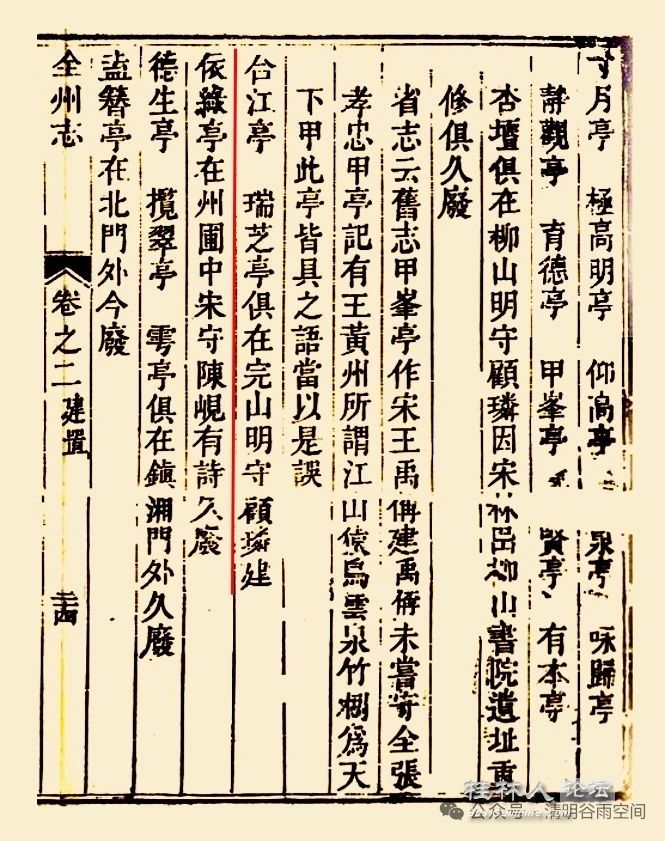 月亭　極高明亭　仰高亭　泉亭　咏歸亭
靜觀亭　育德亭　甲峯亭　賢亭　有本亭
杏壇俱在柳山明守顧璘因宋柳山書院遺址重
修俱久廢
省志云舊志甲峯亭作宋王禹偁建禹偁未嘗守全張
孝忠甲亭記有王黃州所謂江山猿鳥雲泉竹樹爲天
下甲此亭皆具之語當以是誤
合江亭　瑞芝亭俱在完山明守顧璘建
依綠亭在州圃中宋守陳峴有詩久廢
德生亭　攬翠亭　雩亭俱在鎮湘門外久廢
盍簪亭在北門外今廢
全州志　卷之二　建置　三十四
桂林人论坛
公众号 · 清明谷雨空间